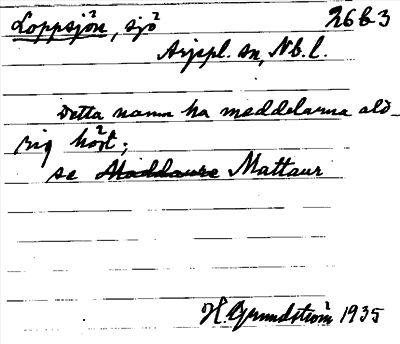 Loppsjön, sjö 26b3
Arjspl. sn, Nb. l.
Detta namn ha meddelarna ald-
rig hört;
se Maddaure Mattaur
H. Grundström 1935